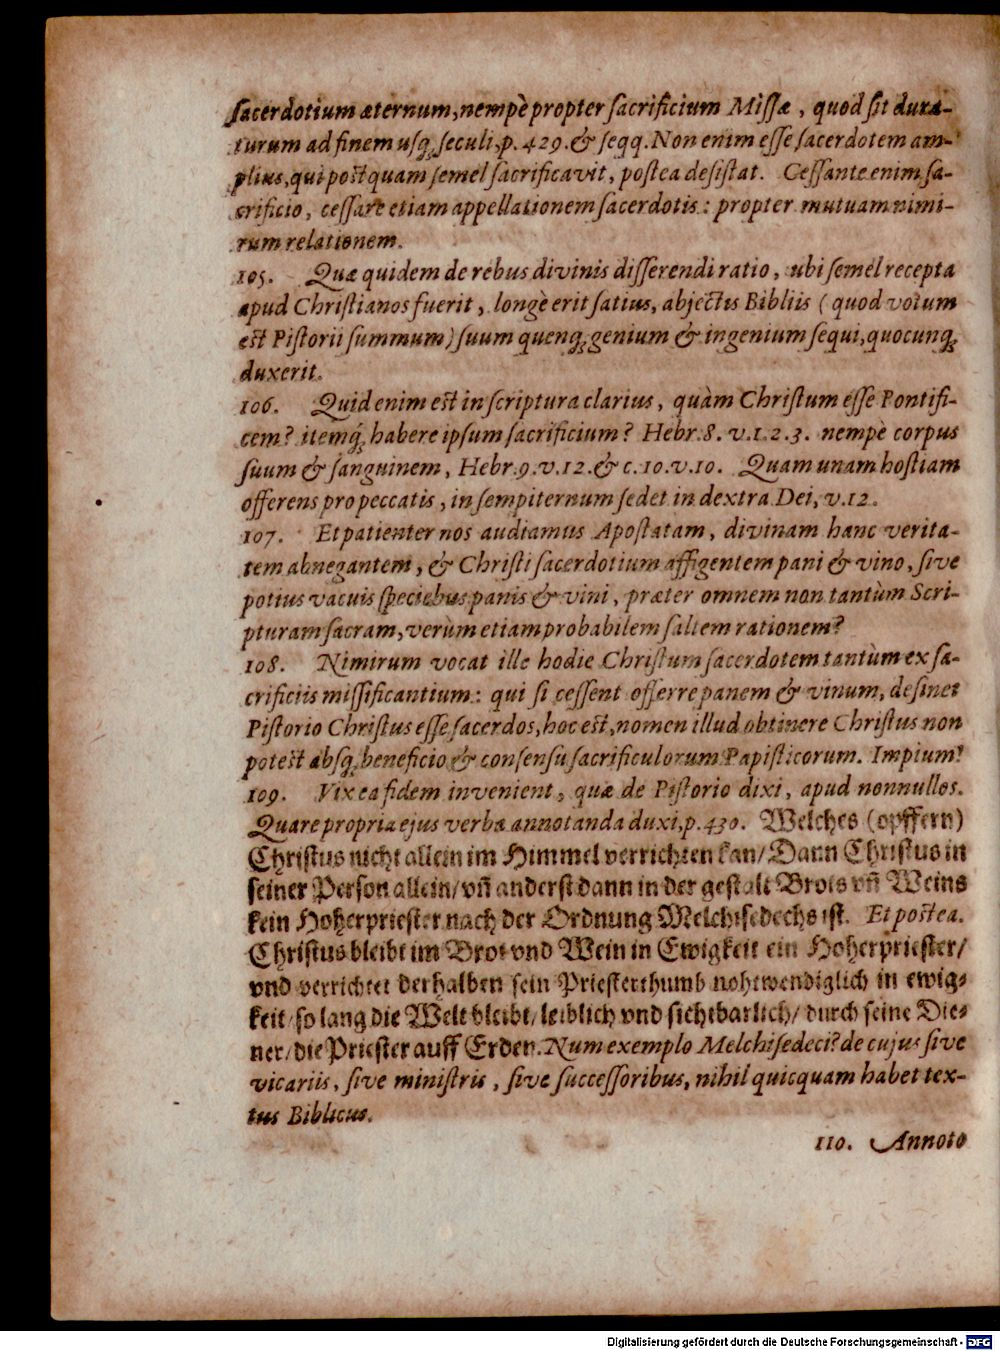 sacerdotium æternum, nempè propter sacrificium Missæ, quod sit dura-
turum ad finem usq́; seculi, p. 429. & seqq. Non enim esse sacerdotem am-
plius, qui postquam semel sacrificavit, postea desistat. Cessante enim sa-
crificio, cessare etiam appellationem sacerdotis: propter mutuam nimi-
rum relationem.
105. Quæ quidem de rebus divinis disserendi ratio, ubi semel recepta
apud Christianos fuerit, longè erit satius, abjectis Bibliis (quod votum
est Pistorii summum) suum quenq́; genium & ingenium sequi, quocunq́;
duxerit.
106. Quid enim est in scriptura clarius, quàm Christum esse Pontifi-
cem? itemq́; habere ipsum sacrificium? Hebr. 8. v. 1. 2. 3. nempè corpus
suum & sanguinem, Hebr. 9. v. 12. & c. 10. v. 10. Quam unam hostiam
offerens pro peccatis, in sempiternum sedet in dextra Dei, v. 12.
107. Et patienter nos audiamus Apostatam, divinam hanc verita-
tem abnegantem, & Christi sacerdotium affigentem pani & vino, sive
potius vacuis speciebus panis & vini, præter omnem non tantùm Scri-
pturam sacram, verùm etiam probabilem saltem rationem?
108. Nimirum vocat ille hodie Christum sacerdotem tantùm ex sa-
crificiis missificantium: qui si cessent offerre panem & vinum, desinet
Pistorio Christus esse sacerdos, hoc est, nomen illud obtinere Christus non
potest absq́; beneficio & consensu sacrificulorum Papisticorum. Impium!
109. Vix ea fidem invenient, quæ de Pistorio dixi, apud nonnullos.
Quare propria ejus verba annotanda duxi, p. 430. Welches (opffern)
Christus nicht allein im Himmel verrichten kan/ Dann Christus in
seiner Person allein/ vñ anderst dann in der gestalt Brots vñ Weins
kein Hoherpriester nach der Ordnung Melchisedechs ist. Et postea.
Christus bleibt im Brot vnd Wein in Ewigkeit ein Hoherpriester/
vnd verrichtet derhalben sein Priesterthumb nohtwendiglich in ewig-
keit/ so lang die Welt bleibt/ leiblich vnd sichtbarlich/ durch seine Die-
ner/ die Priester auff Erden. Num exemplo Melchisedeci? de cujus sive
vicariis, sive ministris, sive successoribus, nihil quicquam habet tex-
tus Biblicus.
110. Annoto
Digitalisierung gefördert durch die Deutsche Forschungsgemeinschaft - DFG